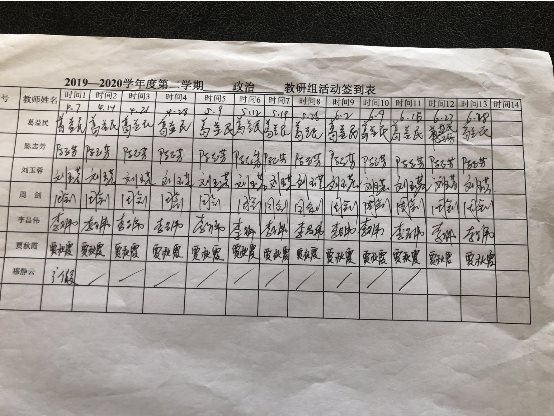 2019—2020学年度第二学期 政治 教研组活动签到表
号 教师姓名 时间1 时间2 时间3 时间4 时间5 时间6 时间7 时间8 时间9 时间10 时间11 时间12 时间13 时间14
4.7 4.14 4.21 4.28 5.9 5.12 5.19 5.26 6.2 6.9 6.15 6.23 6.28
葛益民 葛益民 葛益民 葛益民 葛益民 葛益民 葛益民 葛益民 葛益民 葛益民 葛益民 葛益民 葛益民 葛益民
陈志芳 陈志芳 陈志芳 陈志芳 陈志芳 陈志芳 陈志芳 陈志芳 陈志芳 陈志芳 陈志芳 陈志芳 陈志芳 陈志芳
刘玉蓉 刘玉蓉 刘玉蓉 刘玉蓉 刘玉蓉 刘玉蓉 刘玉蓉 刘玉蓉 刘玉蓉 刘玉蓉 刘玉蓉 刘玉蓉 刘玉蓉 刘玉蓉
周 剑 周剑 周剑 周剑 周剑 周剑 周剑 周剑 周剑 周剑 周剑 周剑 周剑 周剑
李昌伟 李昌伟 李昌伟 李昌伟 李昌伟 李昌伟 李昌伟 李昌伟 李昌伟 李昌伟 李昌伟 李昌伟 李昌伟 李昌伟
贾秋霞 贾秋霞 贾秋霞 贾秋霞 贾秋霞 贾秋霞 贾秋霞 贾秋霞 贾秋霞 贾秋霞 贾秋霞 贾秋霞 贾秋霞 贾秋霞
穆静云